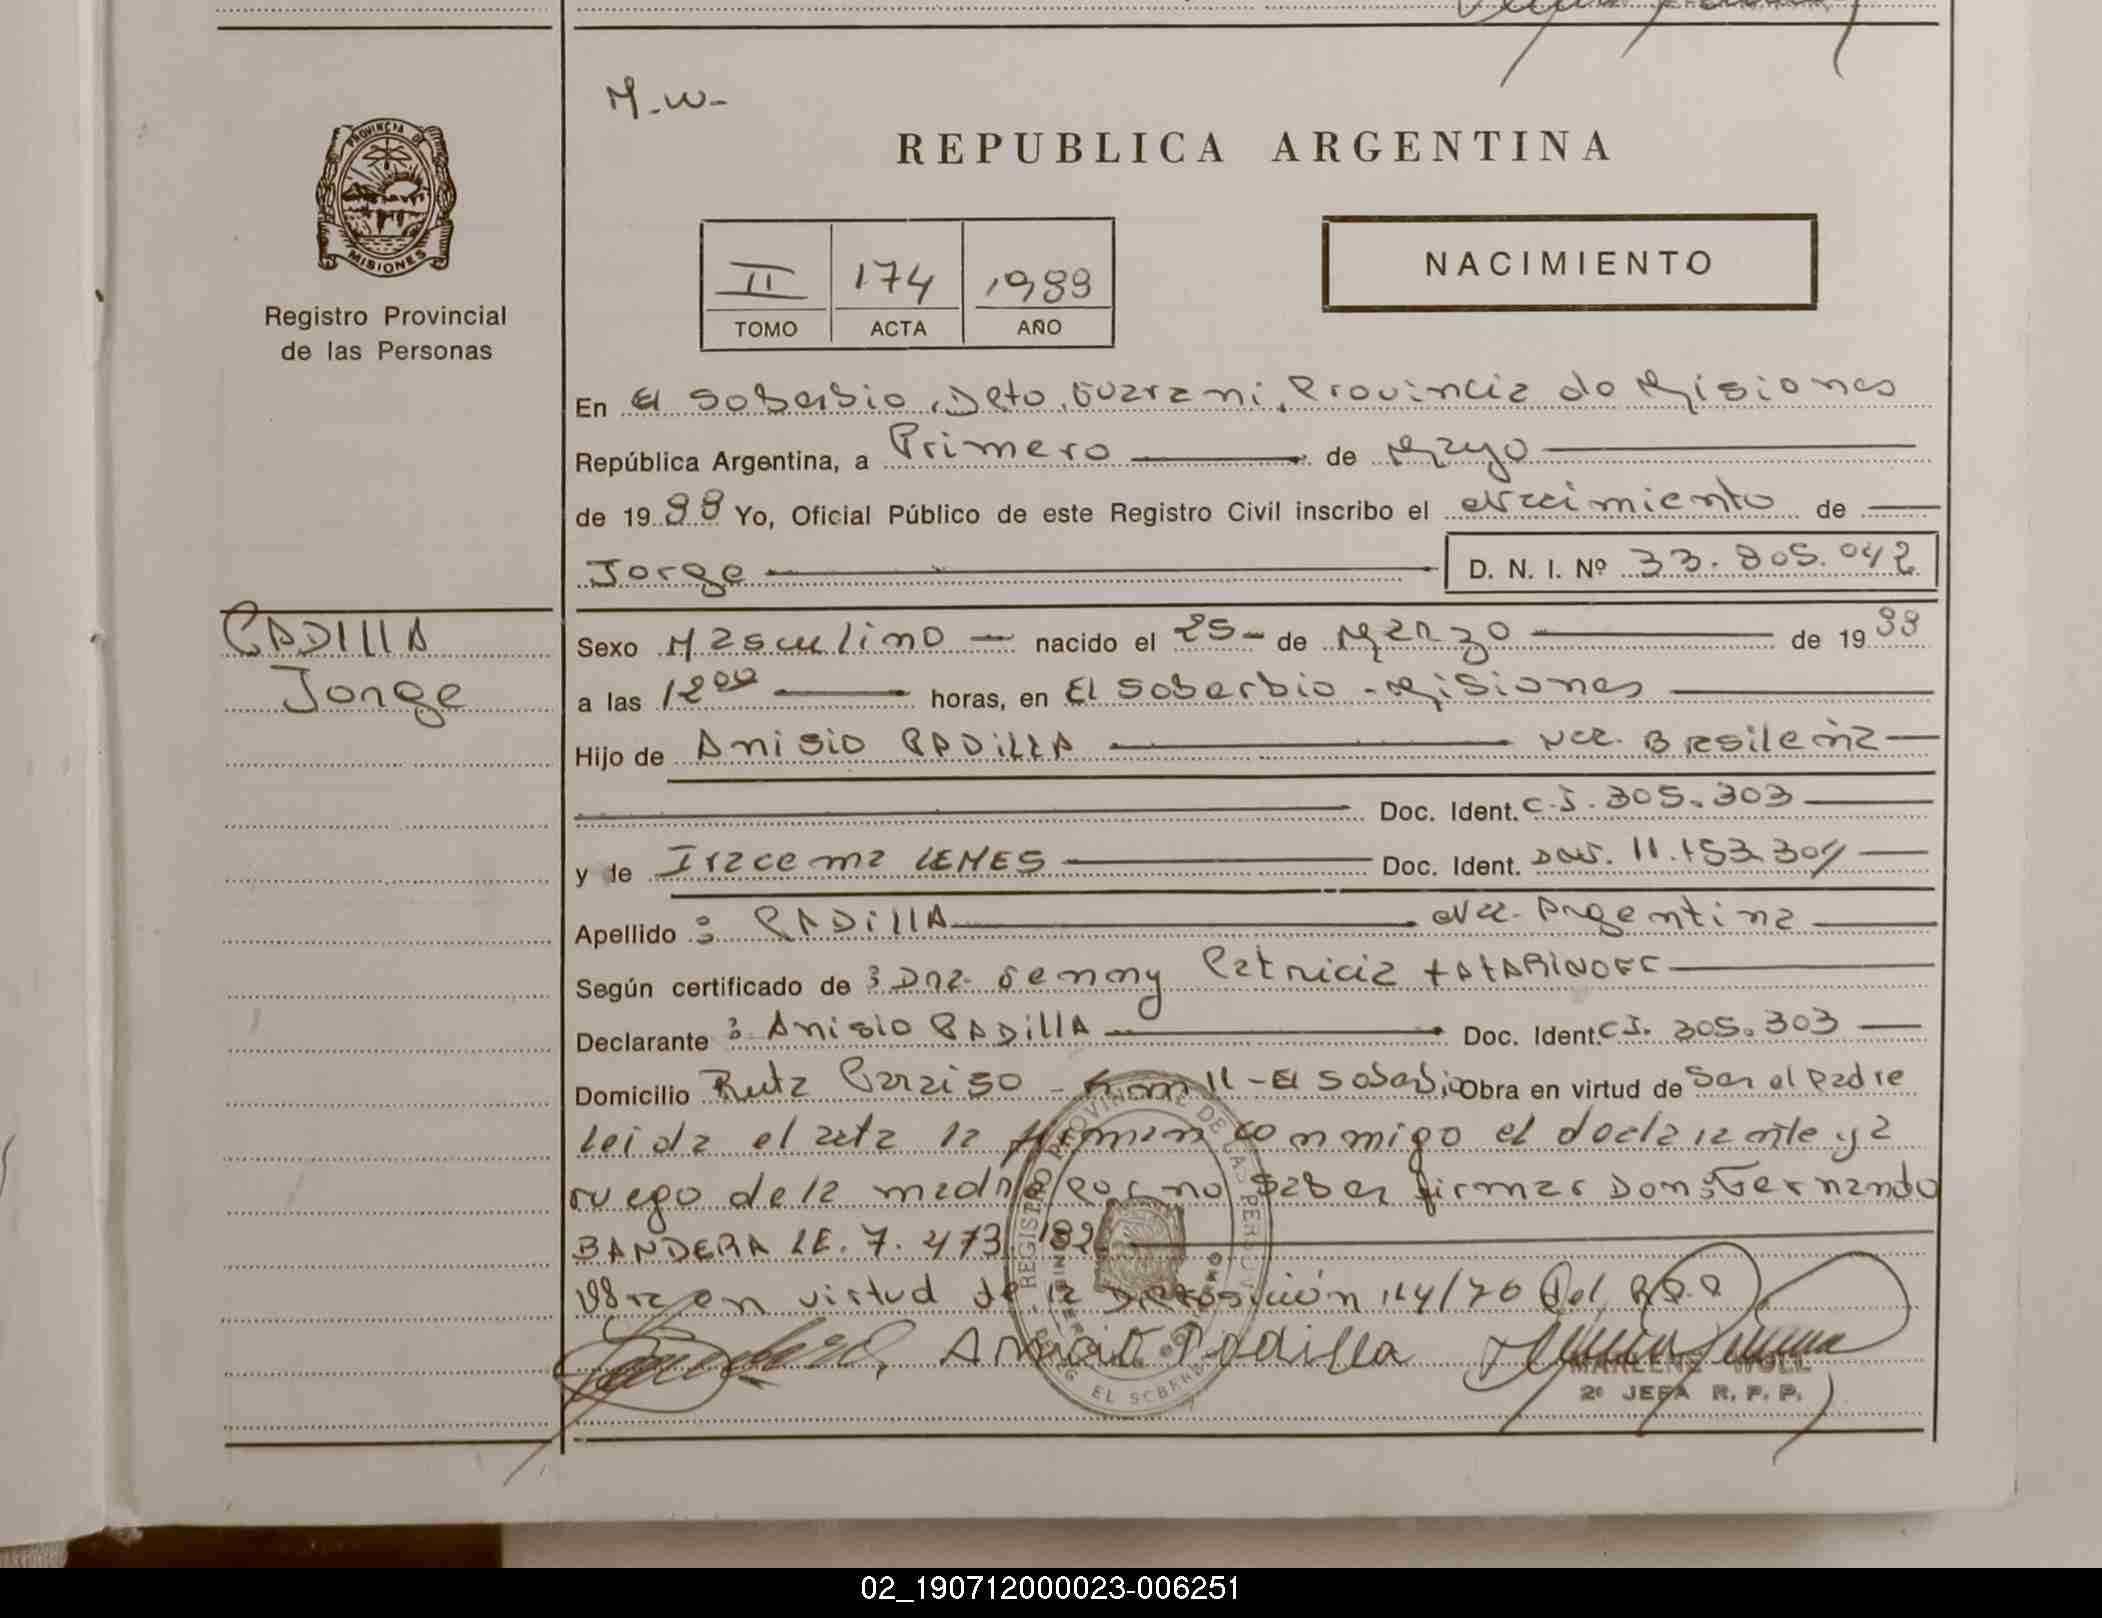 M.W-
REPUBLICA ARGENTINA
PROVINCIA DE
MISIONES
Registro Provincial
de las Personas
II 174 1988
TOMO ACTA AÑO
NACIMIENTO
En El Soberbio, Dpto. Guarani, Provincia de Misiones
República Argentina, a Primero de Mayo
de 19 88 Yo, Oficial Público de este Registro Civil inscribo el Nacimiento de
Jorge D. N. I. Nº 33.805.042
PADILLA
Jorge
Sexo Masculino nacido el 25- de Marzo de 19 88
a las 12 00 horas, en El Soberbio - Misiones
Hijo de Anisio PADILLA Nac. Brasileña
Doc. Ident. C.I. 305.303
y de Iracema LEMES Doc. Ident. DNI. 11.153.304
Apellido : PADILLA Nac. Argentina
Según certificado de : Dña. Jenny Patricia TATARINOFF
Declarante : Anisio PADILLA Doc. Ident. C.I. 305.303
Domicilio Ruta Paraiso - km 11 - El Soberbio Obra en virtud de Ser el padre
Leida el acta la firman conmigo el declarante y a
ruego de la madre por no saber firmar Don: Fernando
BANDERA LE. 7.473.182
Obra en virtud de la Disposición 114/70 Del R.P.P
Padilla
MARLENE WOLL
2º JEFA R. P. P.
REGISTRO PROVINCIAL DE LAS PERSONAS
EL SOBERBIO
02_190712000023-006251